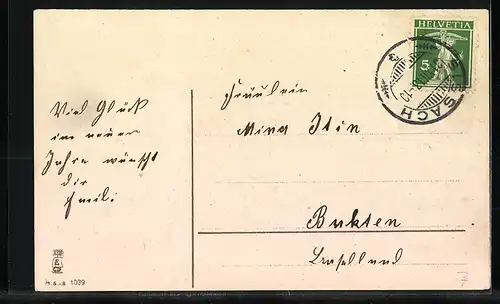 Viel Glück
im neuen
Jahre wünscht
dir
Emili
H.&.S. 1039
Fräulein
Mina Itin
Bukten
Baselland
HELVETIA
5
SISSACH